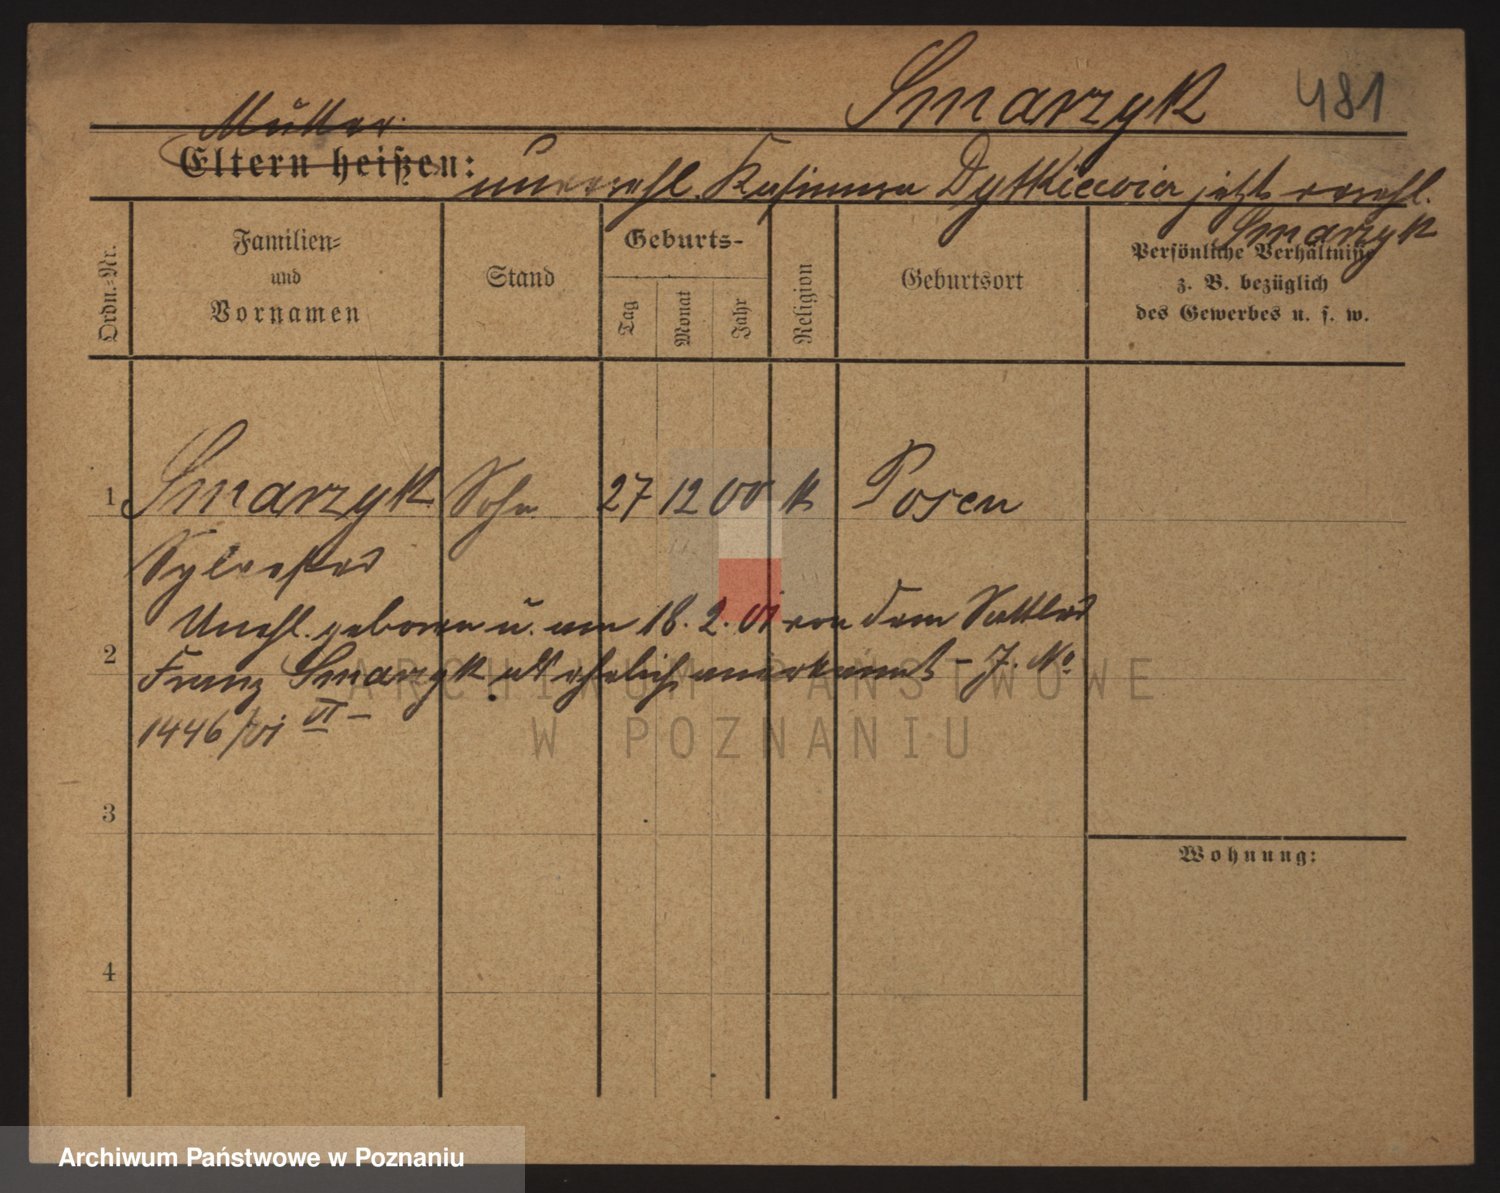 Smarzyk 481
Mutter
Eltern heißen: unverehl. Kasimira Dytkiewicz jetzt verehl.
Smarzyk
Ordn.-Nr.
Familien-
und
Vornamen
Stand
Geburts-
Tag
Monat
Jahr
Religion
Geburtsort
Persönliche Verhältnisse
z. B. bezüglich
des Gewerbes u. s. w.
1 Smarzyk Sohn 27 12 00 k Posen
Sylvester
Unehl. geboren u. am 18. 2. 01 von dem Sattler
2 Franz Smarzyk als ehelich anerkannt – J. No
1446/01 VI –
3
Wohnung:
4
ARCHIWUM PAŃSTWOWE
W POZNANIU
Archiwum Państwowe w Poznaniu